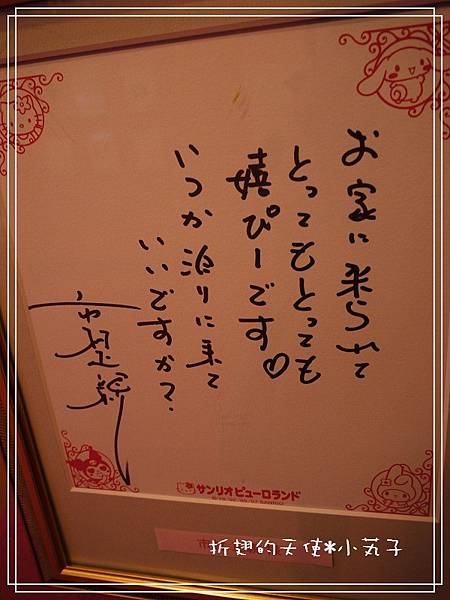 お家に来られて
とってもとっても
嬉ぴーです♡
いつか泊りに来て
いいですか？
サンリオピューロランド
市
折翅的天使*小苑子